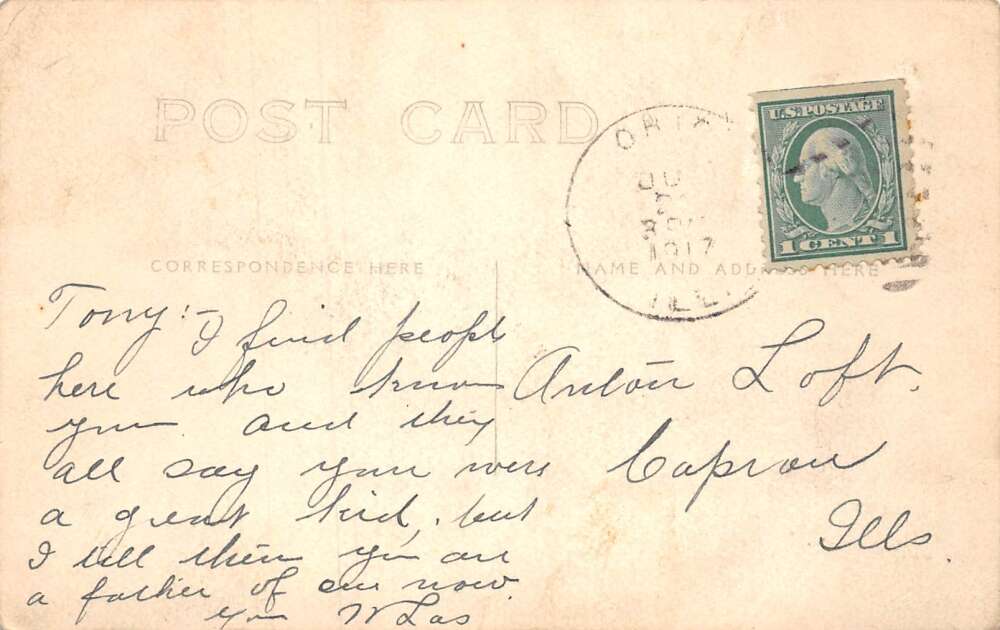 POST CARD
U.S. POSTAGE
1 CENT 1
1917
ILL.
CORRESPONDENCE HERE
NAME AND ADDRESS HERE
Tony:- I find people
here who know
you and they
all say you were
a great kid, but
I tell them you are
a father of one now.
Anton Loft.
Capron
Ills.